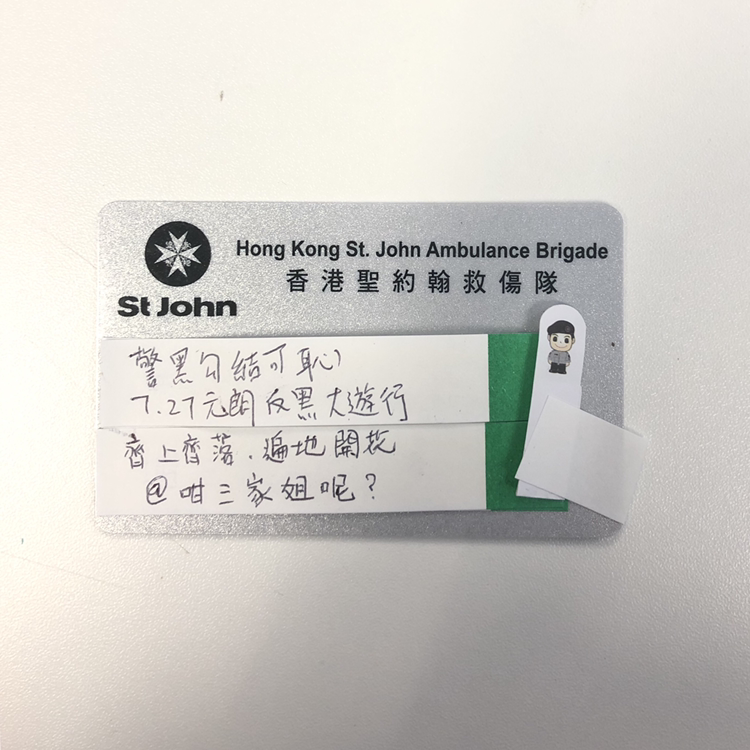 St John
Hong Kong St. John Ambulance Brigade
香港聖約翰救傷隊
警黑勾結可恥
7.27元朗反黑大遊行
齊上齊落．遍地開花
@咁三家姐呢？